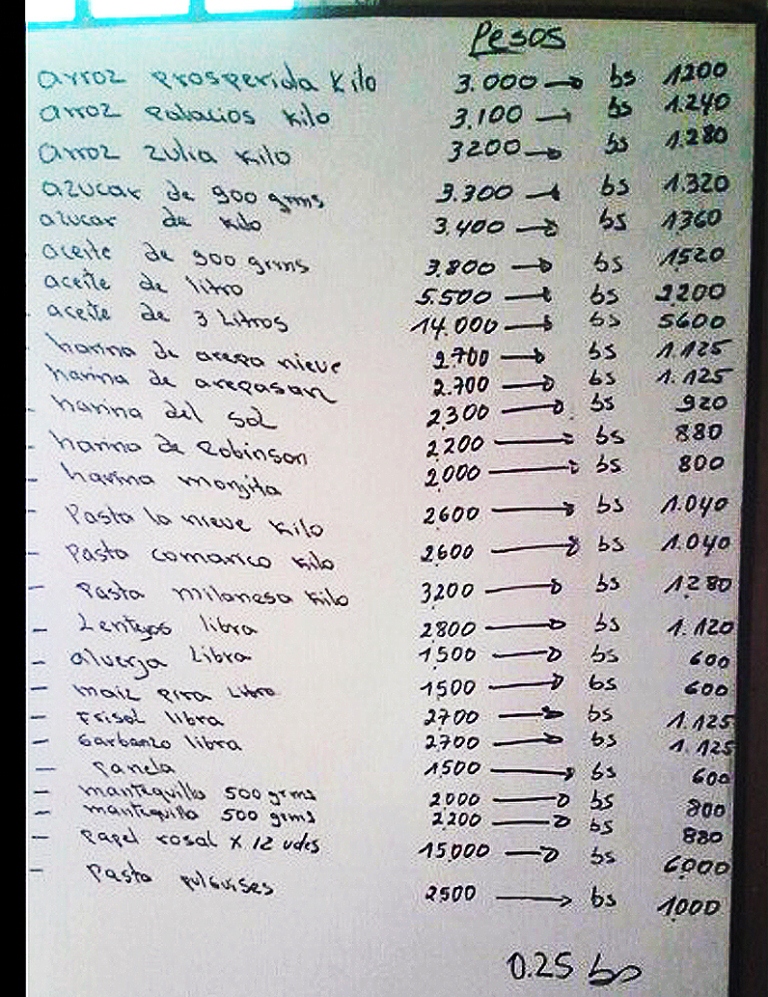 Pesos
arroz prosperida Kilo 3.000 → bs 1200
arroz palacios kilo 3.100 → bs 1.240
arroz zulia kilo 3200 → bs 1.280
azucar de 900 grms 3.300 → bs 1.320
azucar de kilo 3.400 → bs 1360
aceite de 900 grms 3.800 → bs 1520
aceite de litro 5.500 → bs 2200
aceite de 3 Litros 14.000 → bs 5600
harina de arepa nieve 2.700 → bs 1.125
harina de arepasan 2.700 → bs 1.125
- harina del sol 2300 → bs 920
- harina de Robinson 2200 → bs 880
- harina monjita 2000 → bs 800
- Pasta la nieve kilo 2600 → bs 1.040
- Pasta comarico kilo 2600 → bs 1.040
- Pasta milanesa kilo 3200 → bs 1280
- Lentejas libra 2800 → bs 1.120
- alverja Libra 1500 → bs 600
- maiz pira Libra 1500 → bs 600
- Frisol libra 2700 → bs 1.125
- Garbanzo libra 2700 → bs 1.125
- Panela 1500 → bs 600
- mantequilla 500 grms 2000 → bs 800
- mantequilla 500 grms 2200 → bs 880
- Papel rosal x 12 udes 15000 → bs 6000
- Pasta 2500 → bs 1000
0.25 bs